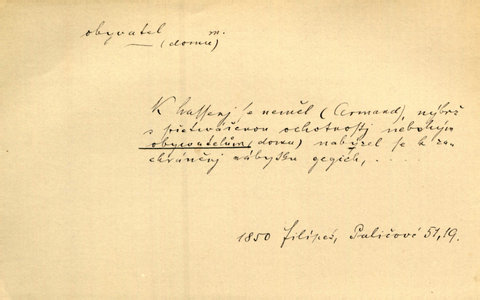 obyvatel m.
(domu)
K hašenj se neměl (Armand), nýbrž
s přetvářenou ochotnostj nebohým
obyvatelům (domu) nabýzel se k za-
chráněnj nábytku gegich, . . . . .
1850 Filipeš, Paličové 51, 19.